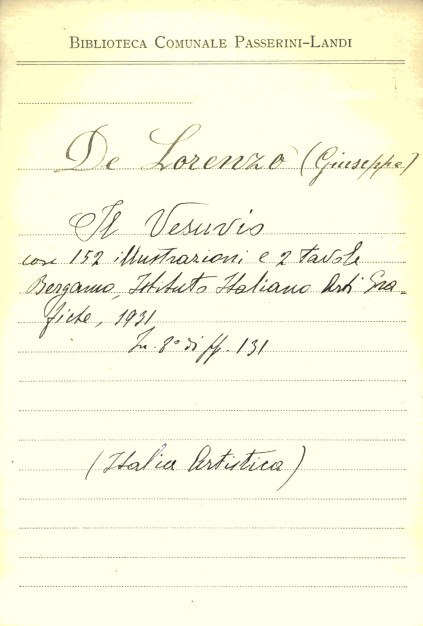 BIBLIOTECA COMUNALE PASSERINI-LANDI
De Lorenzo (Giuseppe)
Il Vesuvio
con 152 illustrazioni e 2 tavole
Bergamo, Istituto Italiano Arti Gra-
fiche, 1931
In 8° di pp. 131
(Italia Artistica)